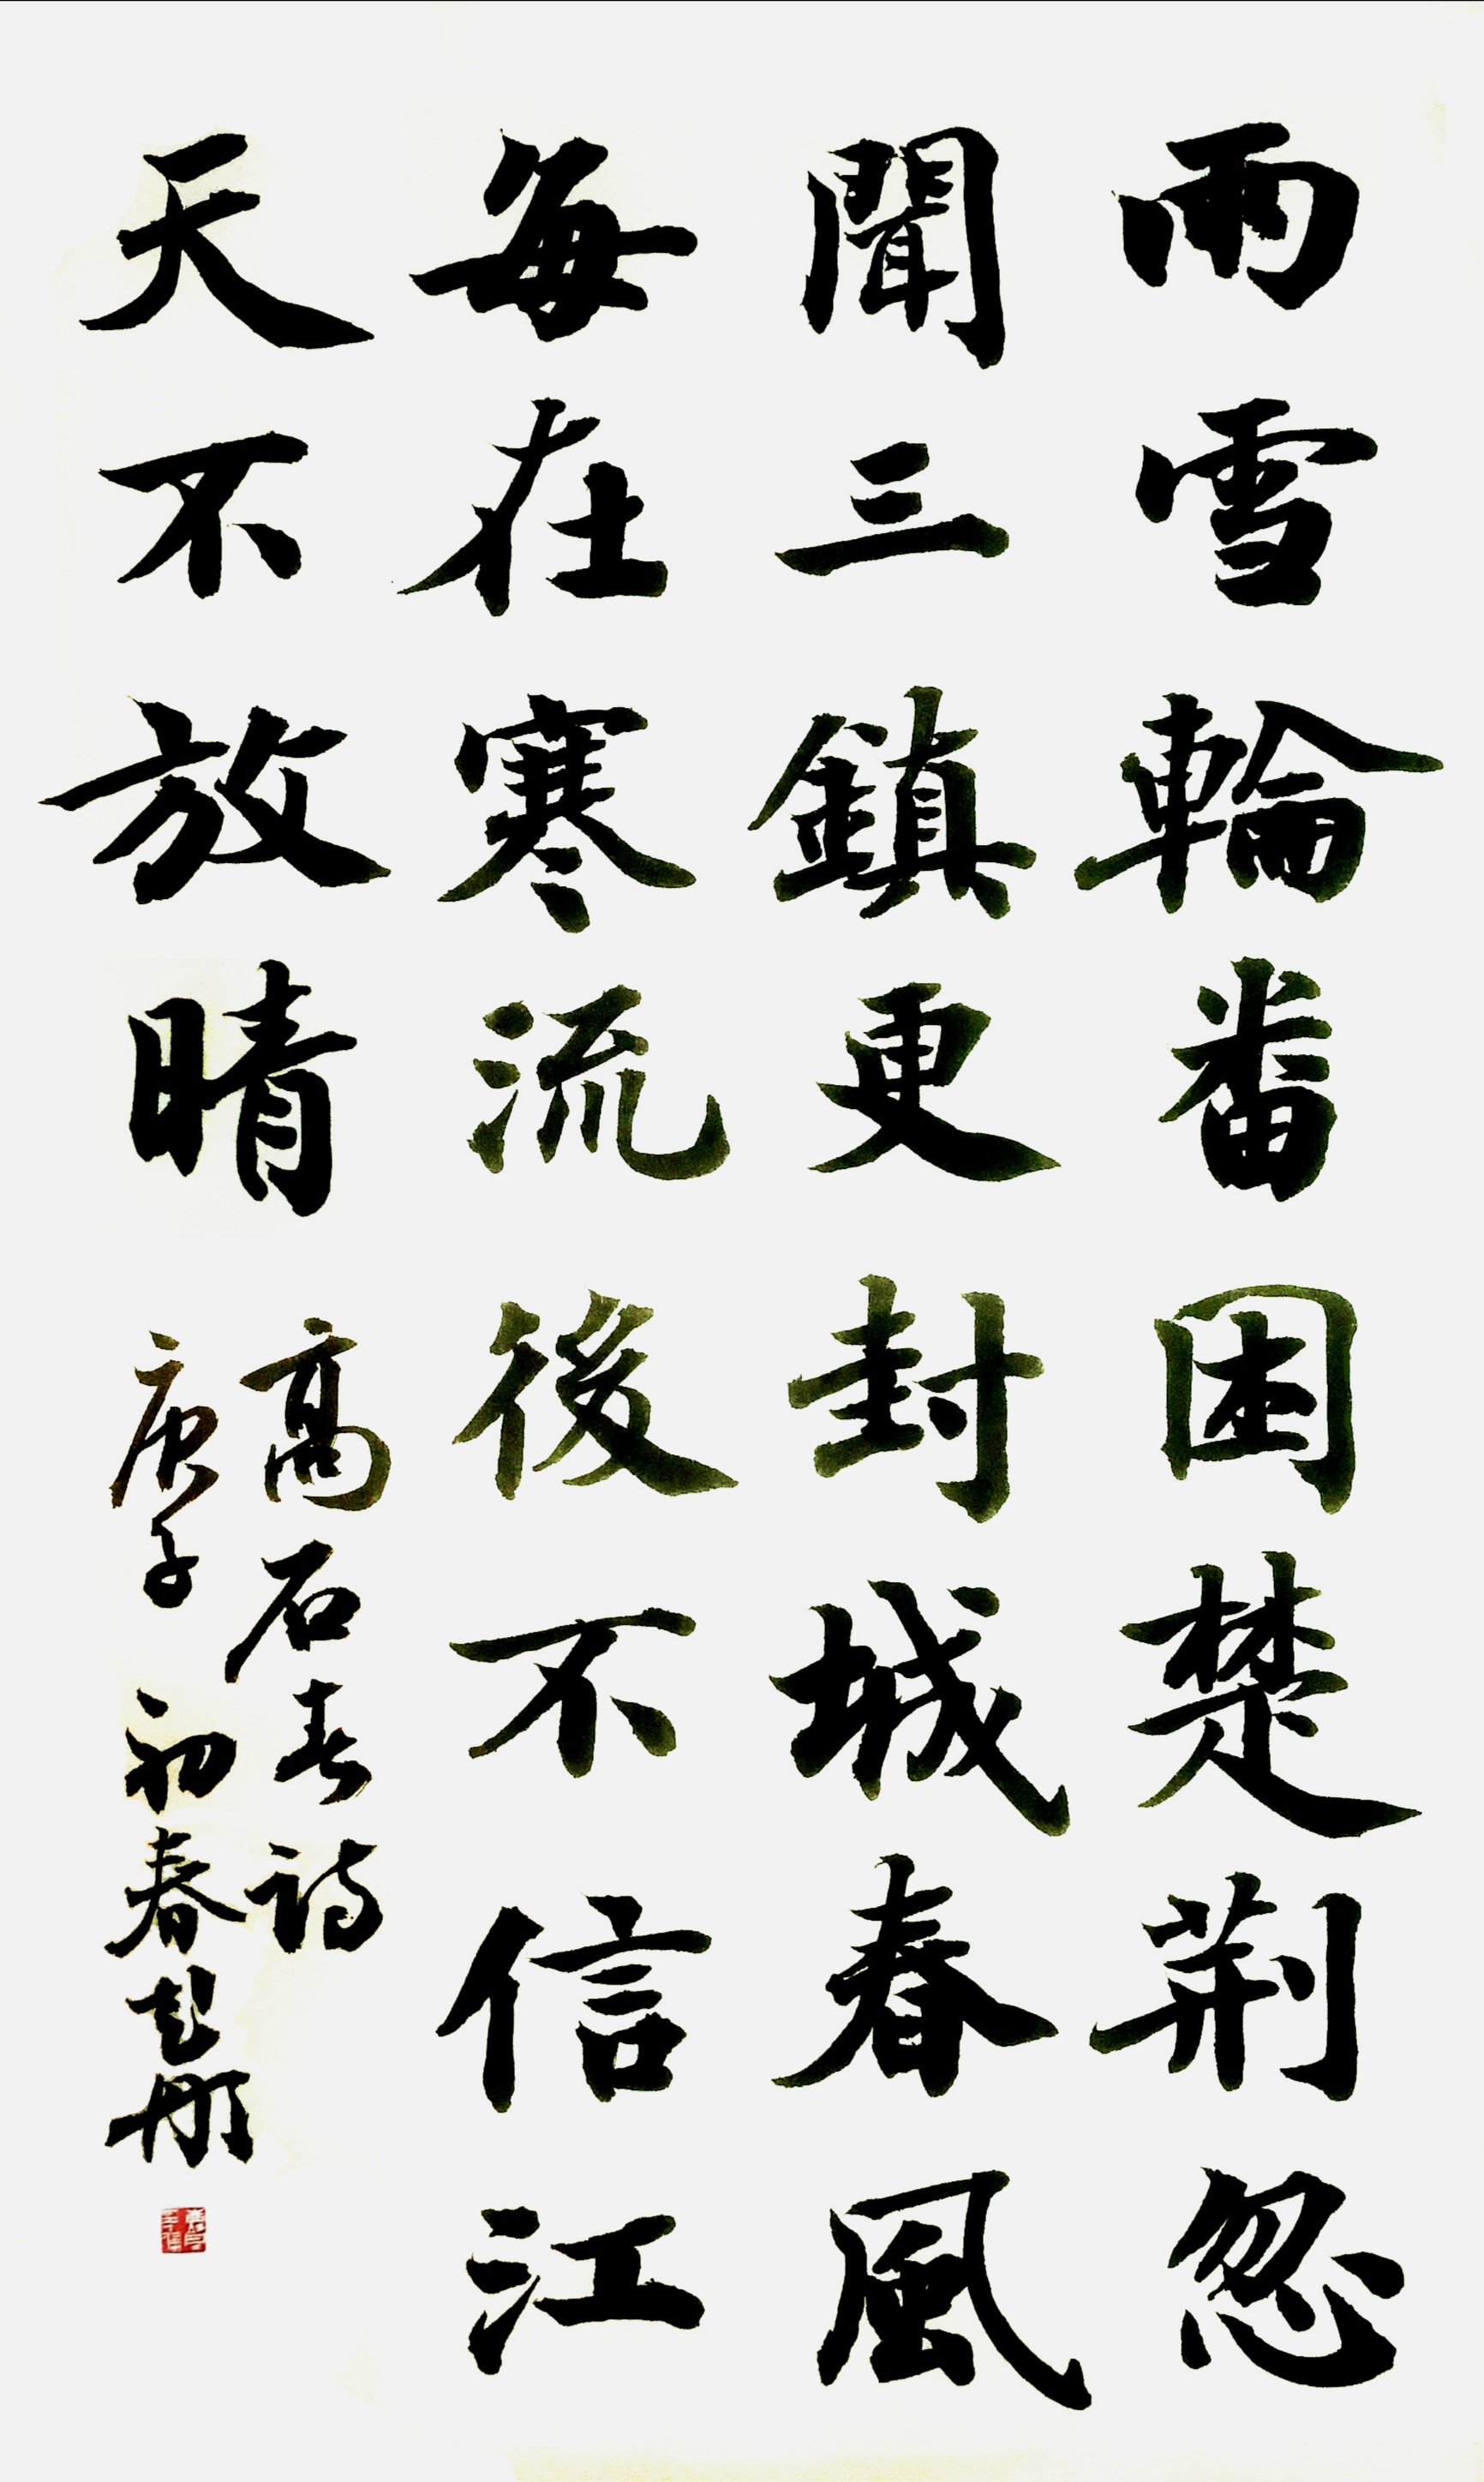 雨雪輪番困楚荆忽
聞三鎮更封城春風
每在寒流後不信江
天不放晴
高石春詩
庚子初春